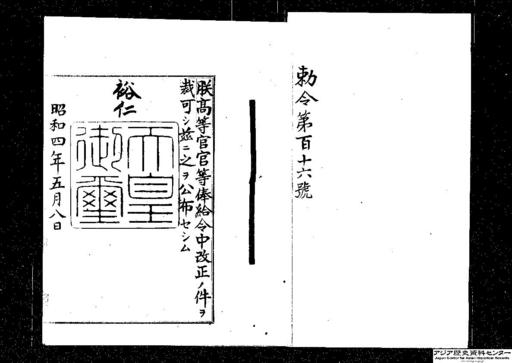 勅令第百十六號
朕高等官官等俸給令中改正ノ件ヲ
裁可シ茲ニ之ヲ公布セシム
裕仁
天皇
御璽
昭和四年五月八日
アジア歴史資料センター
Japan Center for Asian Historical Records